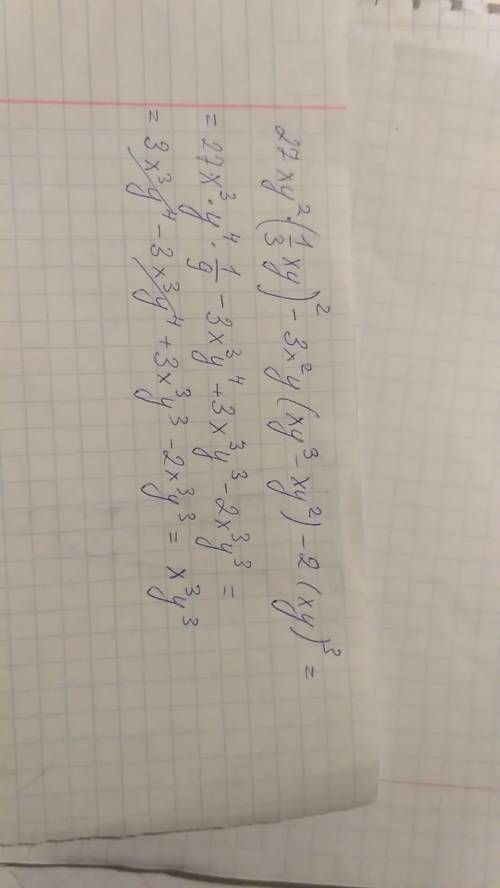 27xy²·(1/3 xy)² - 3x²y(xy³ - xy²) - 2(xy)³ =
= 27x³·y⁴·1/9 - 3x³y⁴ + 3x³y³ - 2x³y³ =
= 3x³y⁴ - 3x³y⁴ + 3x³y³ - 2x³y³ = x³y³